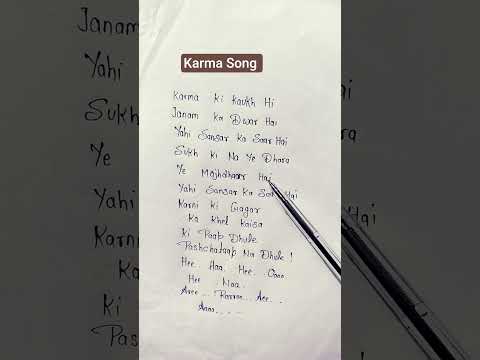 Karma Song
Karma Ki Kaukh Hi
Janam Ka Dwar Hai
Yahi Sansar Ka Saar Hai
Sukh Ki Na Ye Dhara
Ye Majhdhaar Hai
Yahi Sansar Ka Saar Hai
Karni Ki Gagar
Ka Khel Kaisa
Ki Paap Dhule
Pashchataap Na Dhule !
Hee.. Haai.. Hee.. Oooo
Hee.. Naa..
Aree... Rarraa... Aee...
Anaa.....